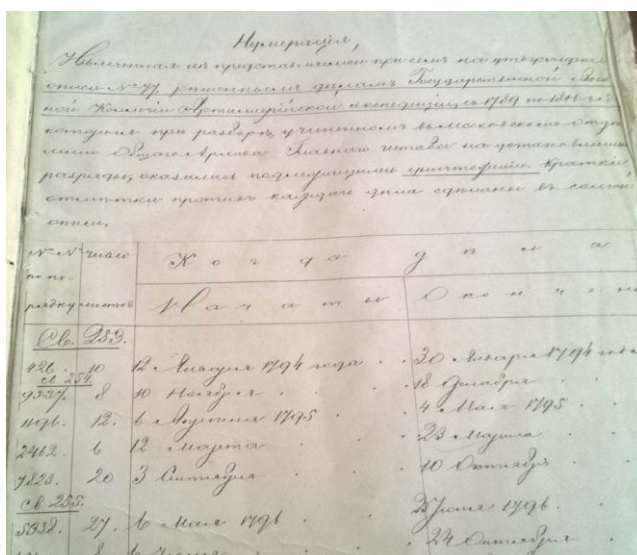 Нумерація,
Извлеченная изъ представляемой при семъ на утвержденіе
описи № 77, решеннымъ дѣламъ Государственной Воен
ной Коллегіи Артиллерійской экспедиціи, съ 1789 по 1800 годъ
которыя при разборѣ, учиненномъ въ Московскомъ Отдѣ
леніи Общаго Архива Главнаго Штаба на установленные
разряды, оказались подлежащими уничтоженію. Краткія
отмѣтки противъ каждаго дѣла сдѣланы въ самой
описи.
№ № число Когда дѣла
по по-
рядку листовъ Начаты Окончены
Св. 253.
426. 10 12 Января 1794 года 30 Января 1794 года
св 254.
9337. 8 10 Ноября 18 Декабря
12. 6 1795 4 Мая 1795
2462. 6 12 Марта 23 Марта
7823. 20 3 Сентября 10 Октября
св 255.
5038. 27. 6 Мая 1796 1796.
8 24 Октября